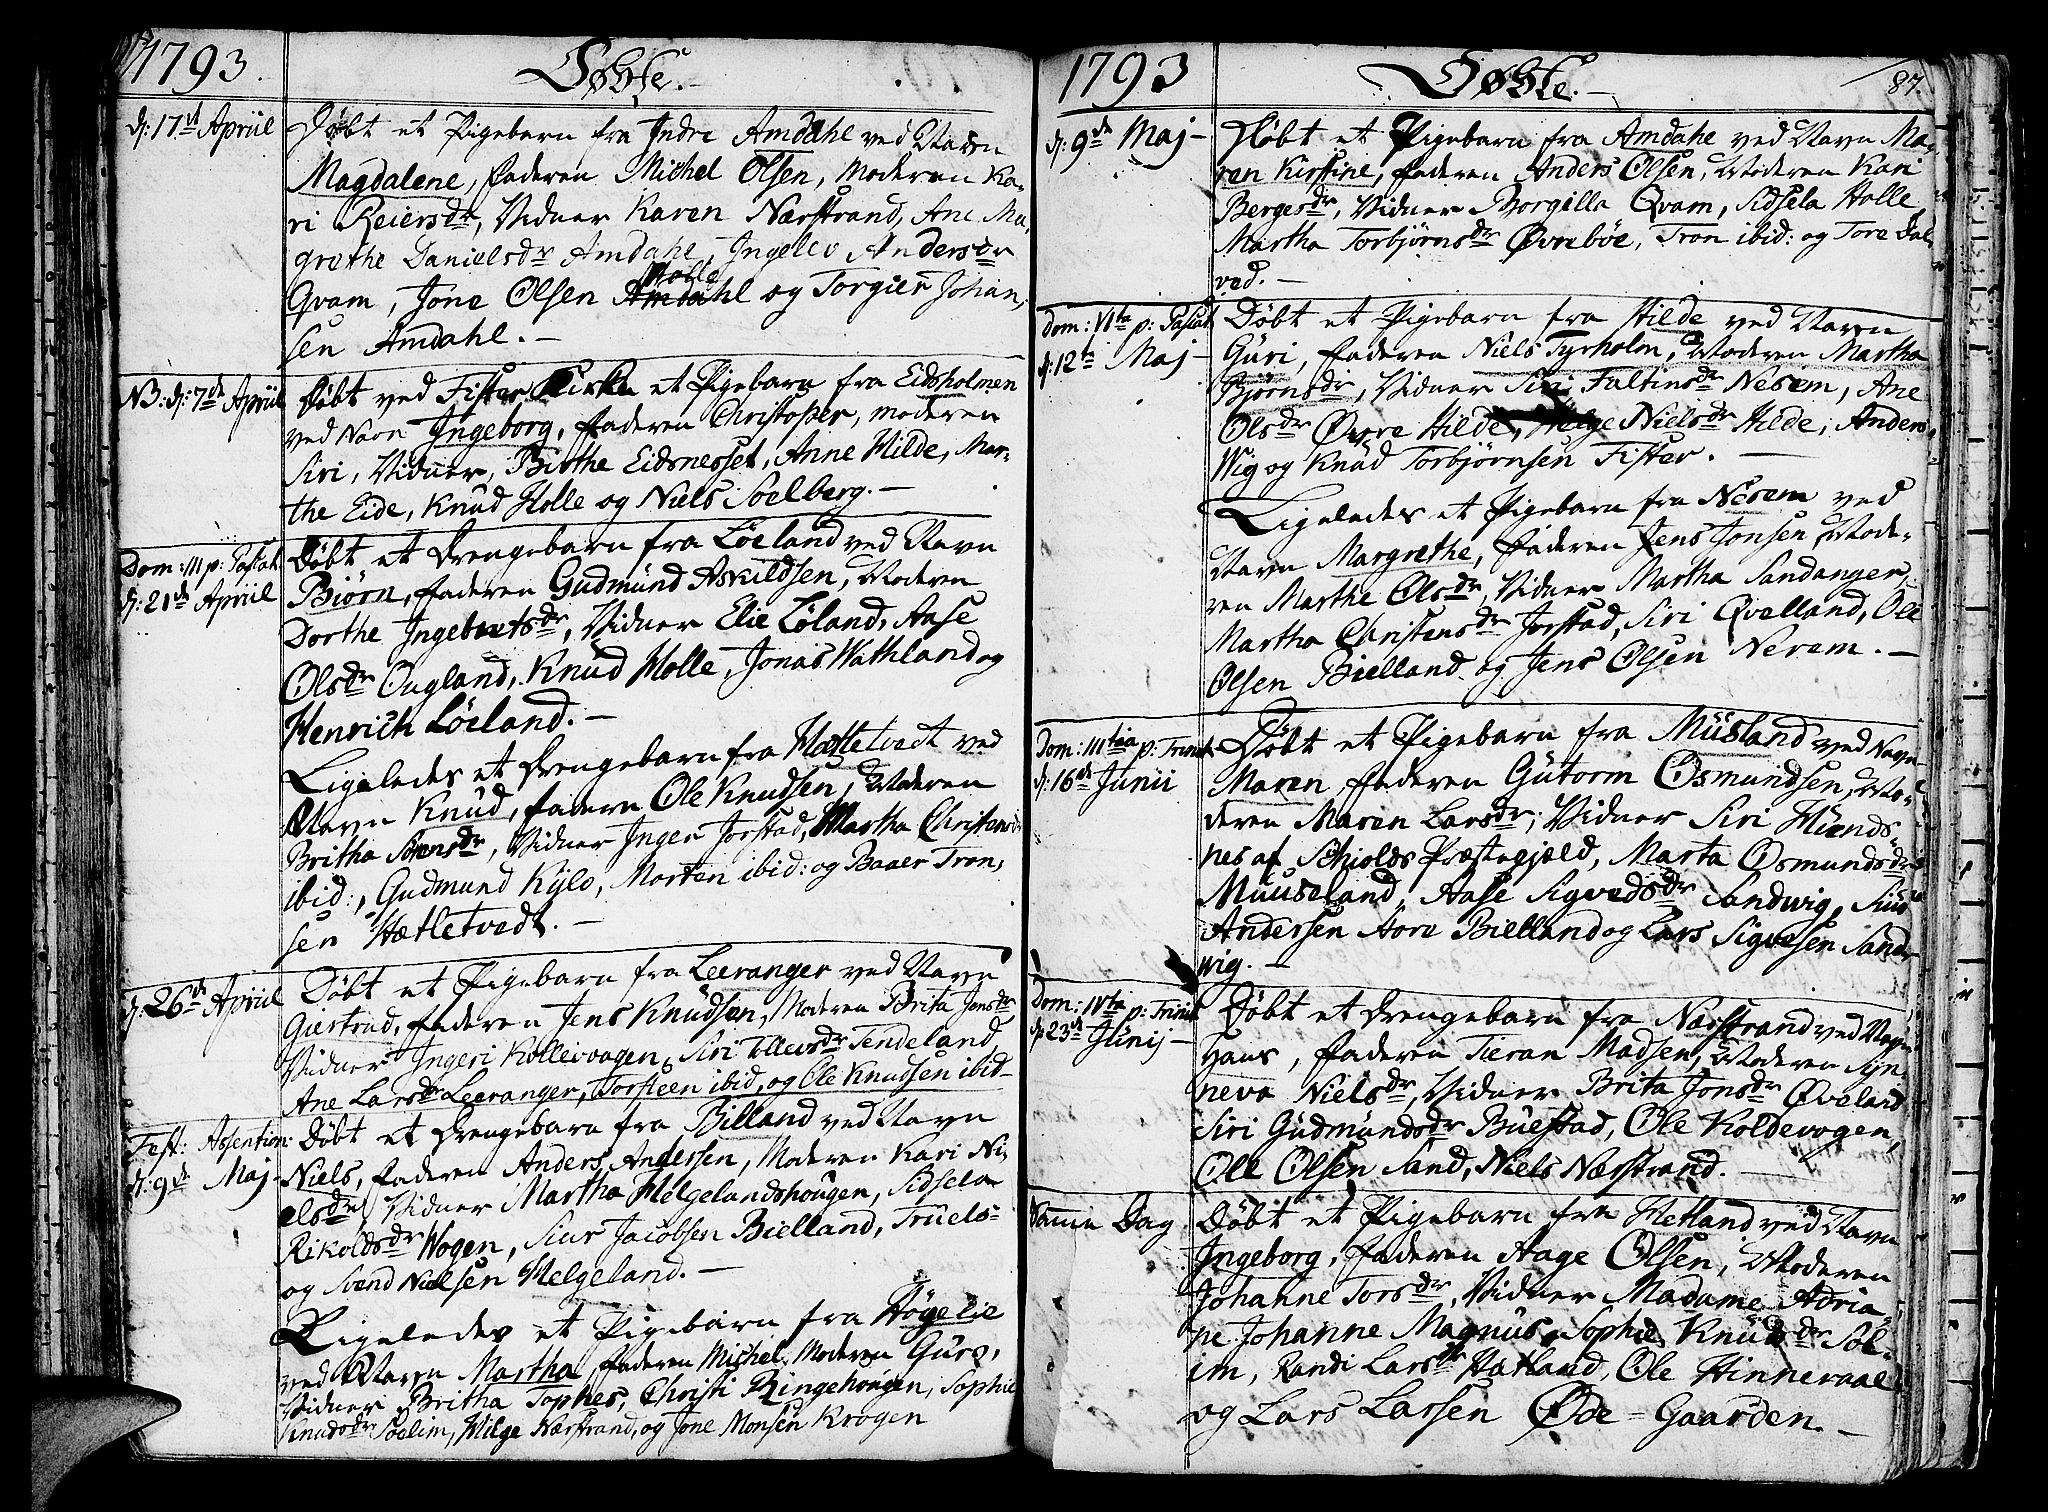 1793. Døbte.
d: 17de Apriil Døbt et Pigebarn fra Indre Amdahl ved Navn
Magdalene, Faderen Michel Olsen, Moderen Ka-
ri Reiersdr, Vidner Karen Nærstrand, Ane Ma-
grethe Danielsdr Amdahl, Ingelev Andersdr
Qvam, Jone Olsen Amdahl og Torgier Johan-
sen Amdahl. —
NB: d: 7de Apriil Døbt ved Fister Kirke et Pigebarn fra Eidsholmen
ved Navn Ingeborg, Faderen Christopher, Moderen
Siri, Vidner, Birthe Eidsnesset, Anne Hilde, Mar-
the Eide, Knud Holle og Niels Soelberg. —
Dom: III p: Pascat Døbt et Drengebarn fra Løeland ved Navn
d: 21de Apriil Biørn, Faderen Gudmund Askildsen, Moderen
Dorthe Ingebretsdr, Vidner Elie Løland, Aase
Olsdr Ougland, Knud Holle, Jonas Wathland og
Henrich Løeland. —
Ligeledes et Drengebarn fra Hætletvedt ved
Navn Knud, Faderen Ole Knudsen, Moderen
Britha Sørensdr, Vidner Inger Jørstad, Martha Christensdr
ibid:, Gudmund Kylv, Morten ibid: og Baaer Tron-
sen Hætletvedt. —
d: 26de Apriil Døbt et Pigebarn fra Leeranger ved Navn
Giertrud, Faderen Jens Knudsen, Moderen Brita Jonsdr
Vidner Ingeri Kollevogen, Siri Tollevsdr Tendeland,
Ane Larsdr Leeranger, Torsteen ibid, og Ole Knudsen ibid —
Fest: Assention: Døbt et Drengebarn fra Billand ved Navn
d: 9de Maj — Niels, Faderen Anders Andersen, Moderen Kari Ni-
elsdr, Vidner Martha Helgelandshougen, Sidsela
Rikoldsdr Wogen, Siur Jacobsen Bielland, Truels
og Svend Nielsen Helgeland. —
Ligeledes et Pigebarn fra Høgelie
ved Navn Martha, Faderen Michel, Moderen Guro,
Vidner Britha Tophes, Christi Ringehougen, Sophie
Knudsdr Soelim, Helge Nærstrand, og Jone Monsen Krogen
1793 Døbte. — 87.
d: 9de Maj — Døbt et Pigebarn fra Amdahl ved Navn Ma-
ren Kirstine, Faderen Anders Olsen, Moderen Kari
Bergesdr, Vidner Borgilla Qvam, Sidsela Holle
Martha Torbjørnsdr Øvrebøe, Tron ibid: og Tore Dal
ved. —
Dom: VIta p: Pascat Døbt et Pigebarn fra Hilde ved Navn
d: 12te Maj — Guri, Faderen Niels Tyrholm, Moderen Martha
Bjørnsdr, Vidner Siri Faltinsdr Nesem, Ane
Olsdr Øvre Hilde, Helge Nielsdr Hilde, Anders
Wig og Knud Torbjørnsen Fister. —
Ligeledes et Pigebarn fra Nesem ved
Navn Margrethe, Faderen Jens Jonsen, Mode-
ren Marthe Olsdr, Vidner Martha Sandanger,
Martha Christensdr Jørstad, Siri Qvelland, Ole
Olsen Bielland og Jens Olsen Nesem. —
Dom: IIItia p: Trinit Døbt et Pigebarn fra Musland ved Navn
d: 16de Junii Maren, Faderen Gutorm Osmundsen, Mo-
deren Maren Larsdr, Vidner Siri Hunds-
nes af Schiolds Præstegjæld, Marta Osmundsdr
Muuseland, Aase Sigvedsdr Sandwig, Siur
Andersen Høre Bielland og Lars Sigvesen Sand-
wig. —
Dom: IVta p: Trinit Døbt et Drengebarn fra Nærstrand ved Navn
d: 23de Junij — Hans, Faderen Tieran Madsen, Moderen Syn-
neva Nielsdr, Vidner Brita Jonsdr Øveland
Siri Gudmundsdr Buestad, Ole Koldevogen,
Ole Olsen Sand, Niels Nærstrand. —
Samme Dag. Døbt et Pigebarn fra Hetland ved Navn
Ingeborg, Faderen Aage Olsen, Moderen
Johanne Torsdr, Vidner Madame Adria-
ne Johanne Magnus, Sophie Knudsdr Sol-
im, Randi Larsdr Hatland, Ole Hinneraae
og Lars Larsen Øde-Gaarden. —